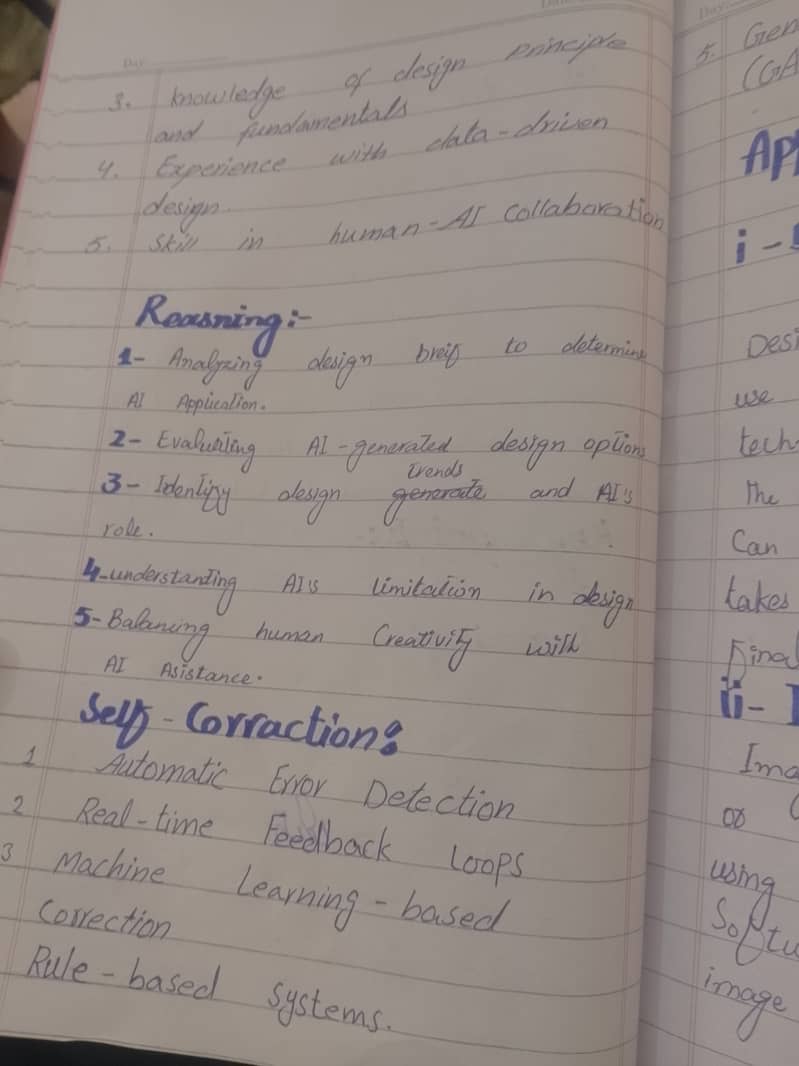 Day
3. knowledge of design principle
and fundamentals
4. Experience with data-driven
design.
5. Skill in human-AI Collaboration
Reasning:-
1- Analyzing design breif to determine
AI Application.
2- Evaluating AI-generated design options
trends
3- Identify design generate and AI's
role.
4-understanding AI's limitation in design
5-Balancing human Creativity with
AI Asistance.
Self-Corraction:
1 Automatic Error Detection
2 Real-time Feedback Loops
3 Machine Learning-based
Correction
Rule-based systems.
Day
5. Gen
(GA
App
i-
Desi
use
tech
The
Can
takes
Final
ii- I
Ima
or
using
Softw
image